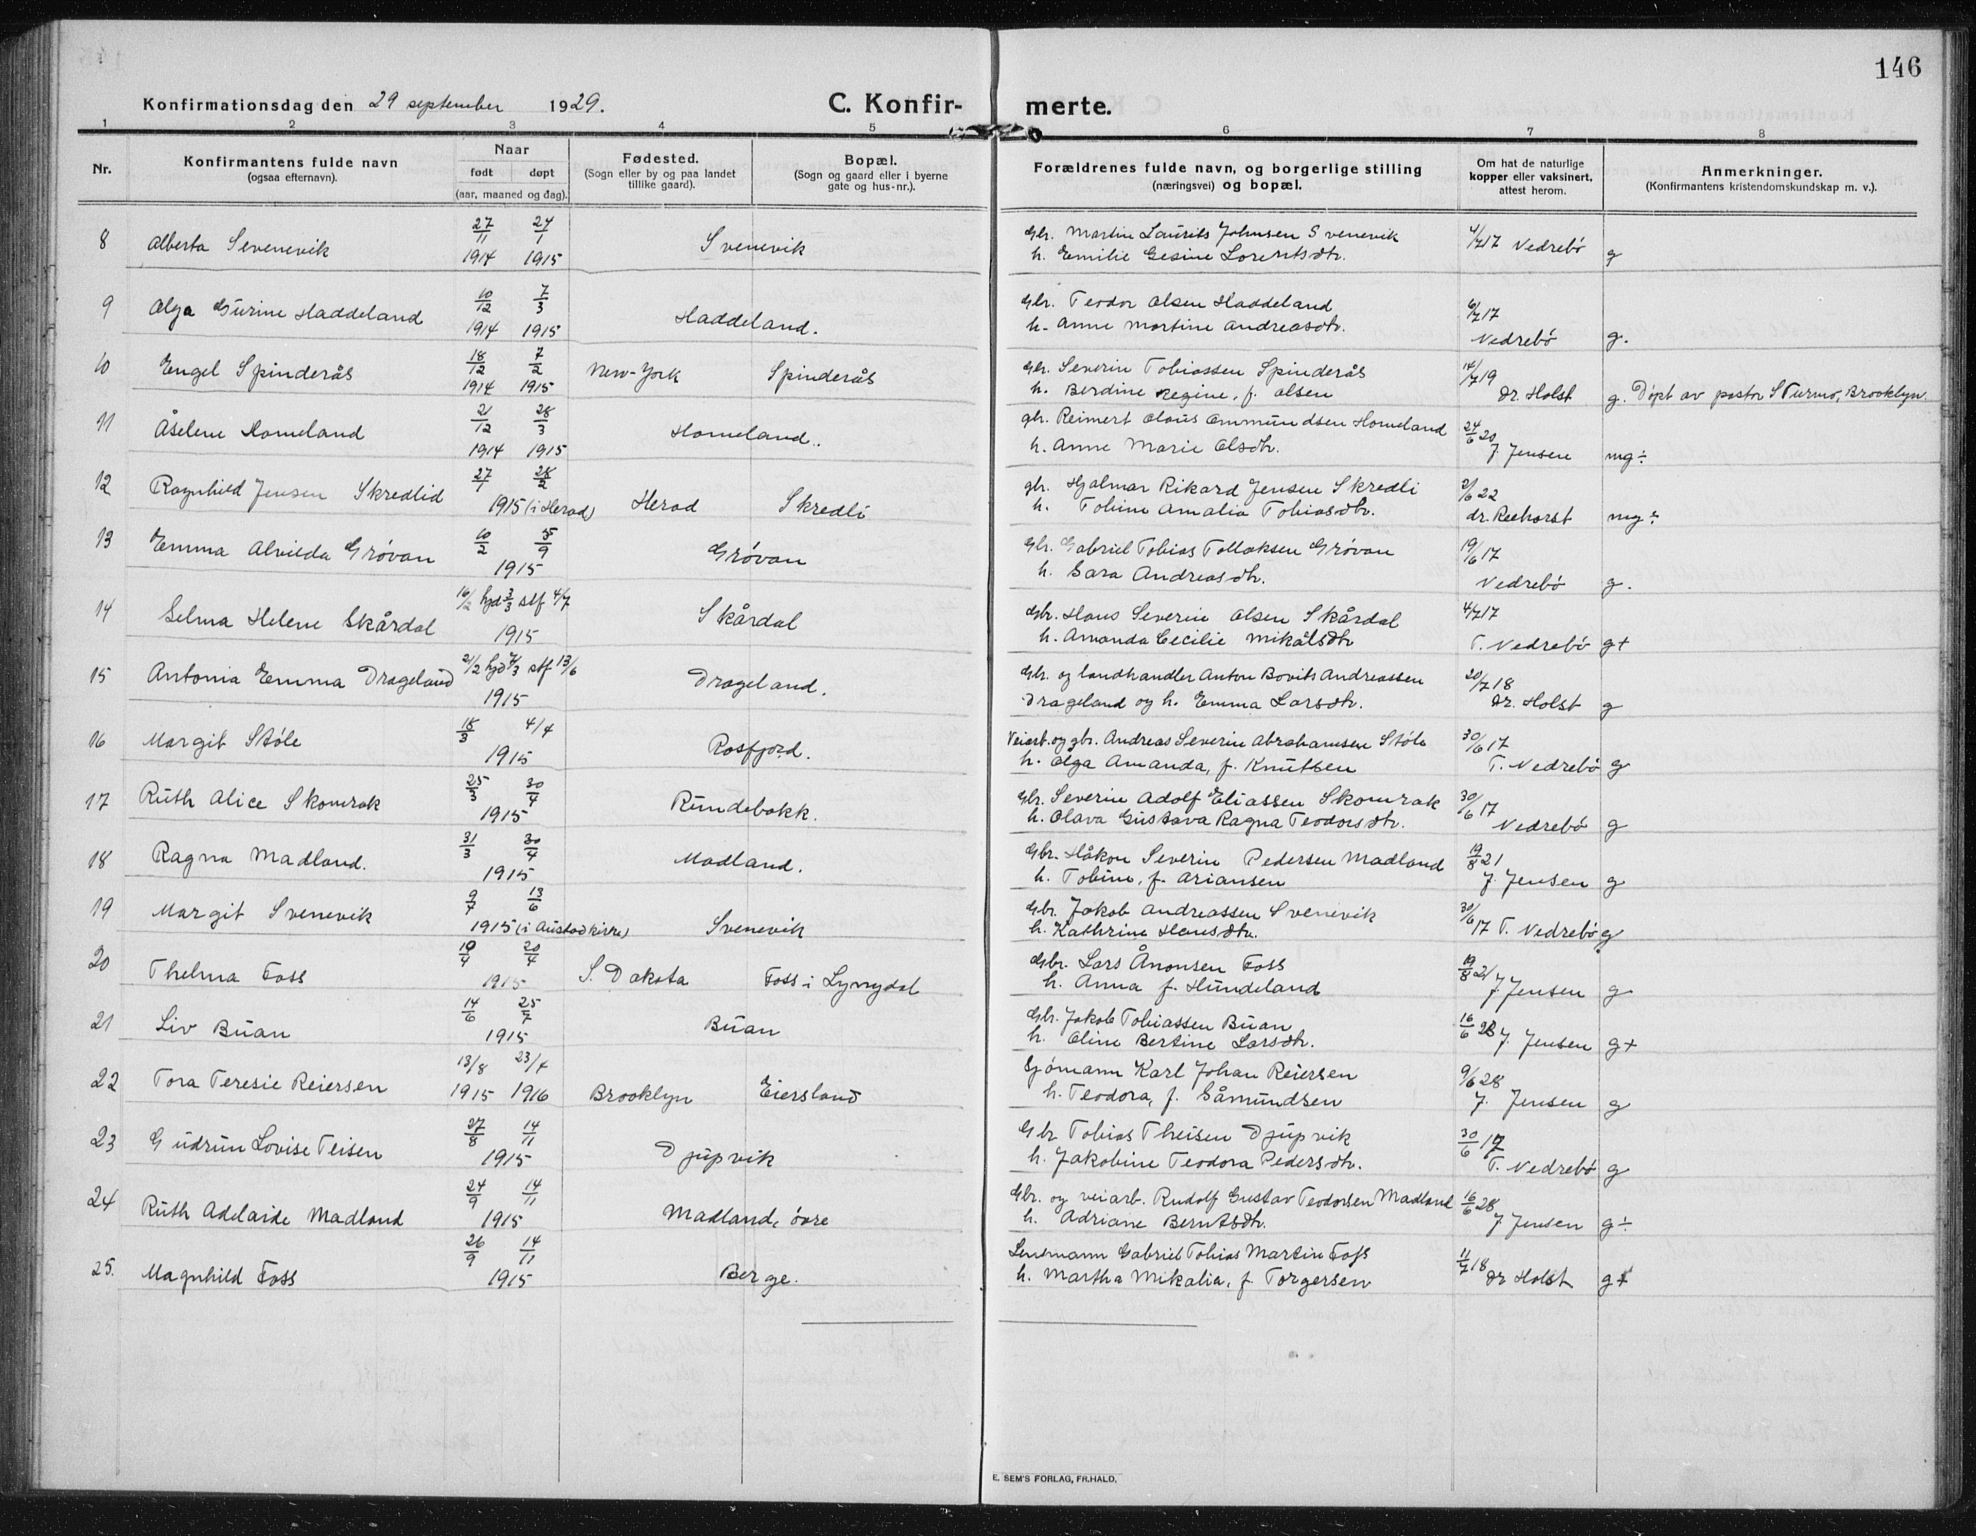 146
Konfirmationsdag den 29 september 1929. C. Konfir- merte.
1 2 3 4 5 6 7 8
Nr. Konfirmantens fulde navn (ogsaa efternavn). Naar født døpt (aar, maaned og dag). Fødested. (Sogn eller by og paa landet tillike gaard). Bopæl. (Sogn og gaard eller i byerne gate og hus-nr.). Forældrenes fulde navn, og borgerlige stilling (næringsvei) og bopæl. Om hat de naturlige kopper eller vaksinert, attest herom. Anmerkninger. (Konfirmantens kristendomskundskap m. v.).
8 Alberta Svenevik 27/11 1914 24/1 1915 Svenevik Gbr. Martin Laurits Johnsen Svenevik h. Emilie Gesine Lorentsdtr. 4/7 17 Vedrebø g
9 Olga Gurine Haddeland 10/12 1914 7/3 1915 Haddeland. Gbr. Teodor Olsen Haddeland h. Anne Martine Andreasdtr. 6/7 17 Vedrebø g.
10 Engel Spinderås 18/12 1914 7/2 1915 New-York Spinderås Gbr. Severin Tobiassen Spinderås h. Berdine Regine, f. Olsen 14/7 19 Dr. Holst g. Døpt av pastor S Turmo, Brooklyn
11 Åselene Homeland 21/12 1914 28/3 1915 Homeland. gbr. Reinert Olaus Ommundsen Homeland h. Anne Marie Olsdtr. 24/6 20 J. Jensen mg÷
12 Ragnhild Jensen Skredlid 27/1 28/2 1915 (i Herad) Herad Skredli gbr. Hjalmar Rikard Jensen Skredli h. Tobine Amalia Tobiasdtr. 2/6 22 dr. Reehorst mg÷
13 Emma Alvilda Grøvan 10/2 5/9 1915 Grøvan Gbr. Gabriel Tobias Tollaksen Grøvan h. Sara Andreasdtr. 19/6 17 Vedrebø g.
14 Selma Helene Skårdal 16/2 hjd 3/3 stf 4/7 1915 Skårdal Gbr. Hans Severin Olsen Skårdal h. Amanda Cecilie Mikalsdtr 4/7 17 T. Vedrebø g+
15 Antonia Emma Drageland 21/2 hjd 7/3 stf 13/6 1915 Drageland. Gbr. og landhandler Anton Bovits Andreassen Drageland og h. Emma Larsdtr. 20/7 18 Dr. Holst g
16 Margit Støle 18/3 4/4 1915 Rosfjord. Veiarb. og gbr. Andreas Severin Abrahamsen Støle h. Olga Amanda, f. Knutsen 30/6 17 T. Vedrebø g
17 Ruth Alice Skomrak 25/3 30/4 1915 Rundebakk. Gbr. Severin Adolf Eliassen Skomrak h. Olava Gustava Ragna Teodorsdtr. 30/6 17 Vedrebø g
18 Ragna Madland. 31/3 30/4 1915 Madland. Gbr. Håkon Severin Pedersen Madland h. Tobine, f. Ariansen 19/8 21 J. Jensen g
19 Margit Svenevik 9/7 13/6 1915 (i Austad kirke) Svenevik Gbr. Jakob Andreassen Svenevik h. Kathrine Hansdtr. 30/6 17 T. Vedrebø g
20 Thelma Foss 19/4 20/4 1915 S. Dakota Foss i Lyngdal Gbr. Lars Ånonsen Foss h. Anna f. Hundeland 19/8 21 J. Jensen g
21 Liv Buan 14/6 25/7 1915 Buan Gbr. Jakob Tobiassen Buan h. Oline Bertine Larsdtr. 16/6 28 J. Jensen g+
22 Tora Teresie Reiersen 13/8 1915 23/4 1916 Brooklyn Eiersland Sjømann Karl Johan Reiersen h. Teodora, f. Såmundsen 9/6 28 J. Jensen g
23 Gudrun Lovise Teisen 27/8 14/11 1915 Djupvik Gbr Tobias Theisen Djupvik h. Jakobine Teodora Pedersdtr. 30/6 17 T. Vedrebø g
24 Ruth Adelaide Madland 24/9 14/11 1915 Madland, øvre Gbr. og veiarb. Rudolf Gustav Teodorsen Madland h. Adriane Berntsdtr. 16/6 28 J Jensen g÷
25. Magnhild Foss 26/9 14/11 1915 Berge. Lensmann Gabriel Tobias Martin Foss h. Martha Mikalia, f. Torgersen 11/7 18 Dr Holst g+
E. SEM'S FORLAG, FR.HALD.